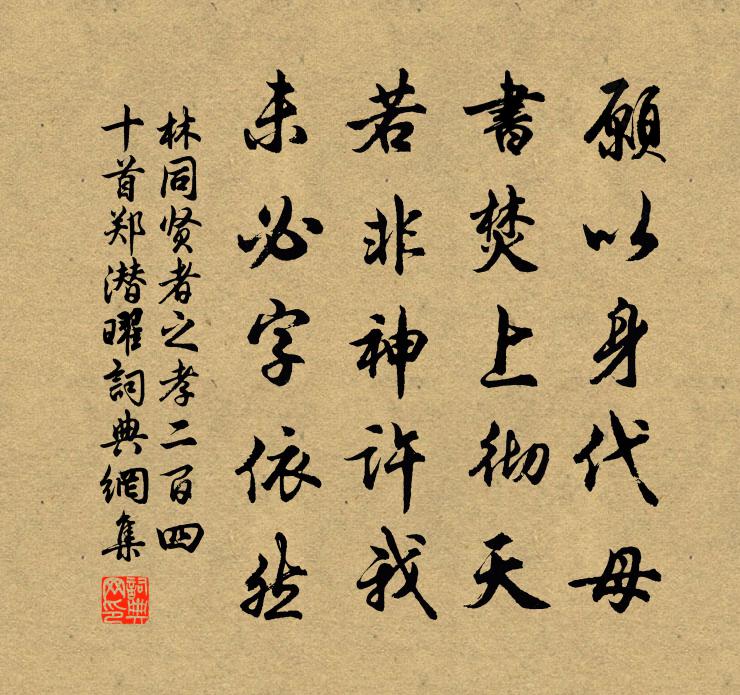 願以身代母
書焚上彻天
若非神許我
未必字依然
林同贤者之孝二百四
十首郑潜曜詞典網集
詞典
网印